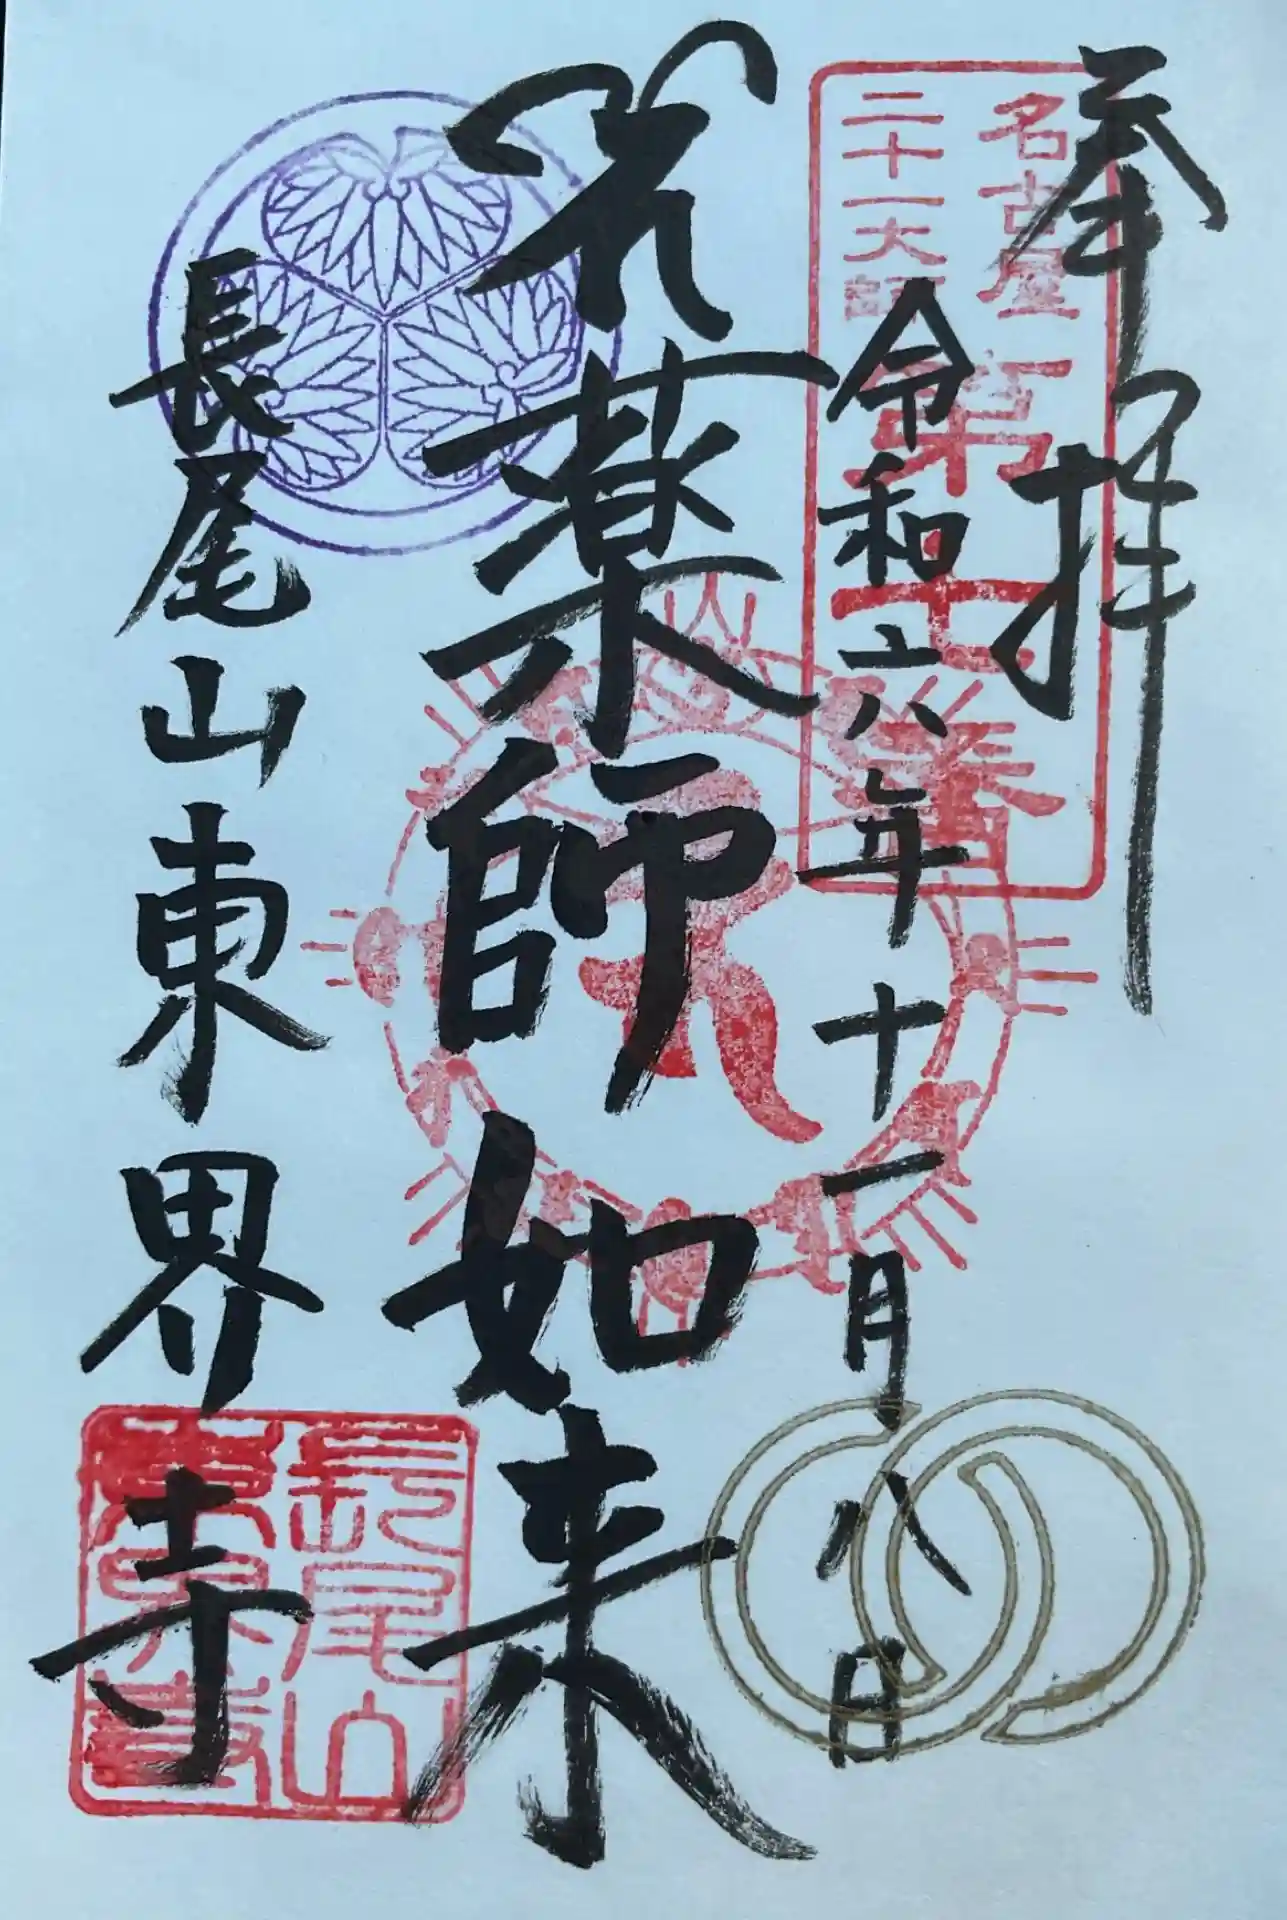 奉拝
名古屋
二十一大師
第 番
令和六年十一月八日
薬師如来
長尾山東界寺
長尾山
東界寺